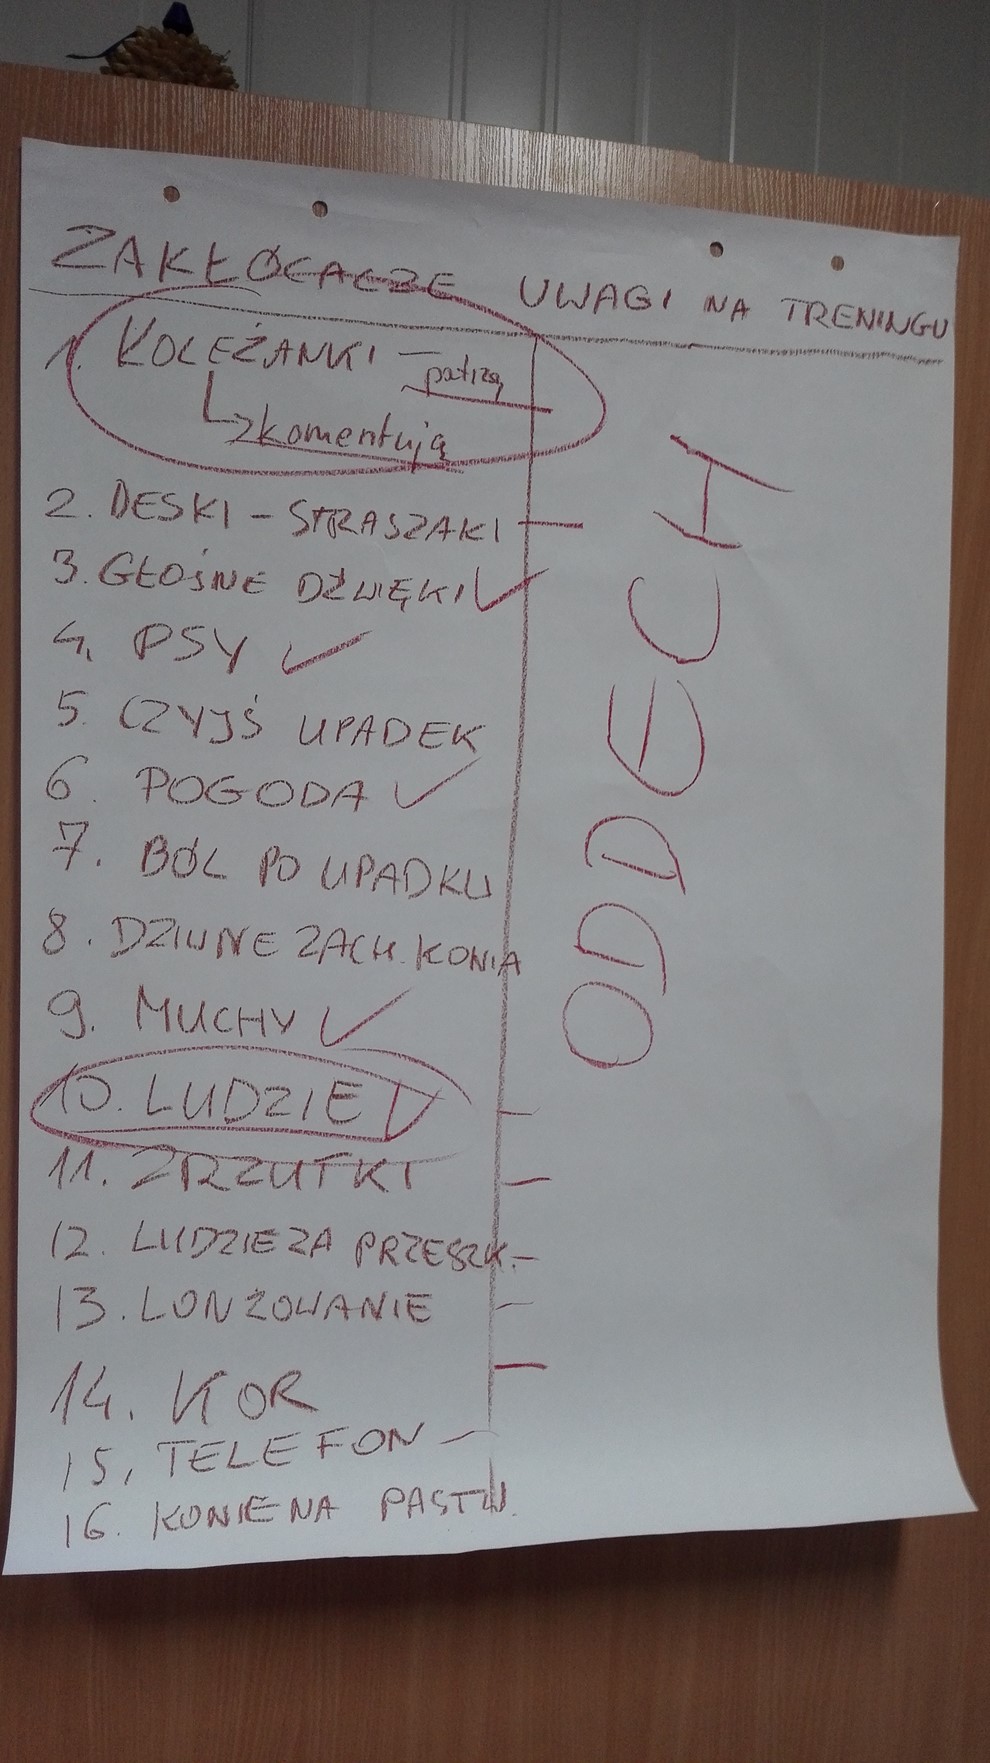 ZAKŁÓCACZE UWAGI NA TRENINGU
1. KOLEŻANKI – patrzą
komentują
2. DESKI – STRASZAKI
3. GŁOŚNE DŹWIĘKI
4. PSY
5. CZYJŚ UPADEK
6. POGODA
7. BÓL PO UPADKU
8. DZIWNE ZACH. KONIA
9. MUCHY
10. LUDZIE
11. ZRZUTKI
12. LUDZIE ZA PRZESZK.
13. LONŻOWANIE
14. KOR
15. TELEFON
16. KONIE NA PASTW.
ODDECH